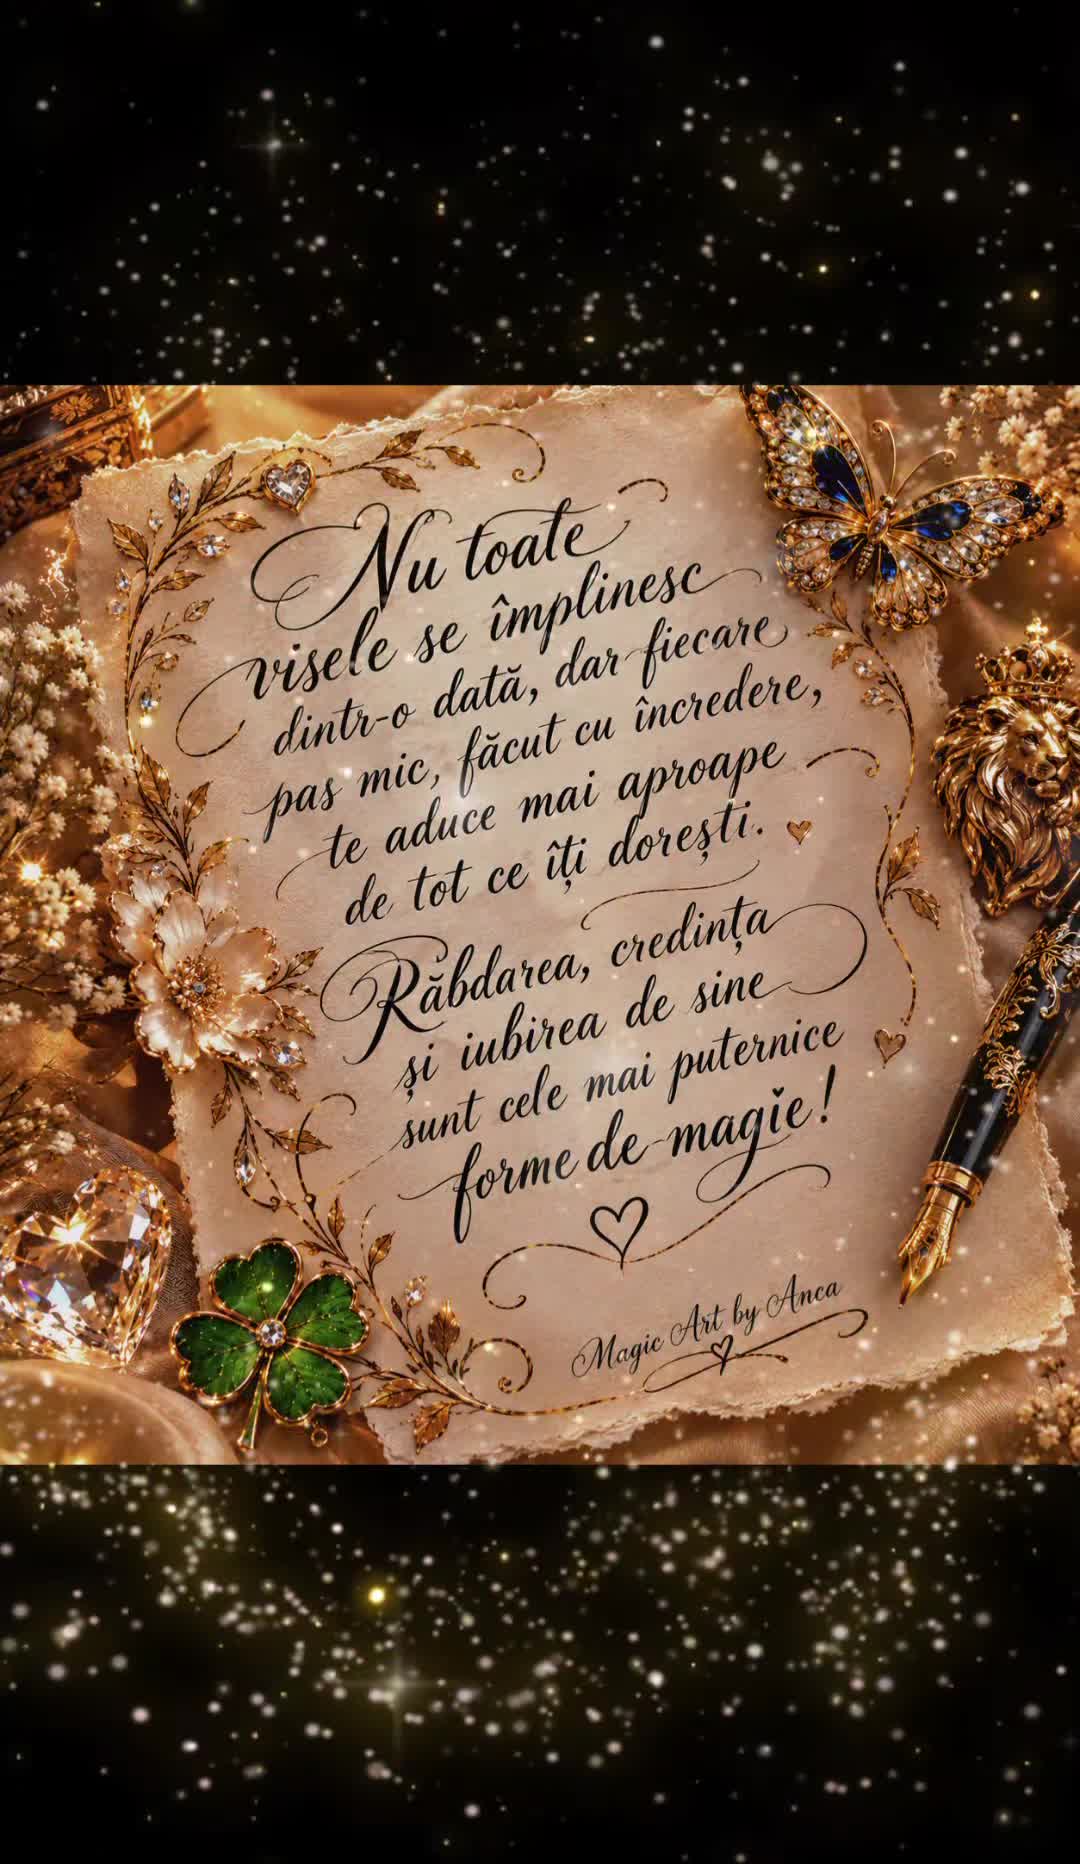 Nu toate
visele se împlinesc
dintr-o dată, dar fiecare
pas mic, făcut cu încredere,
te aduce mai aproape
de tot ce îți dorești.
Răbdarea, credința
și iubirea de sine
sunt cele mai puternice
forme de magie!
Magic Art by Anca